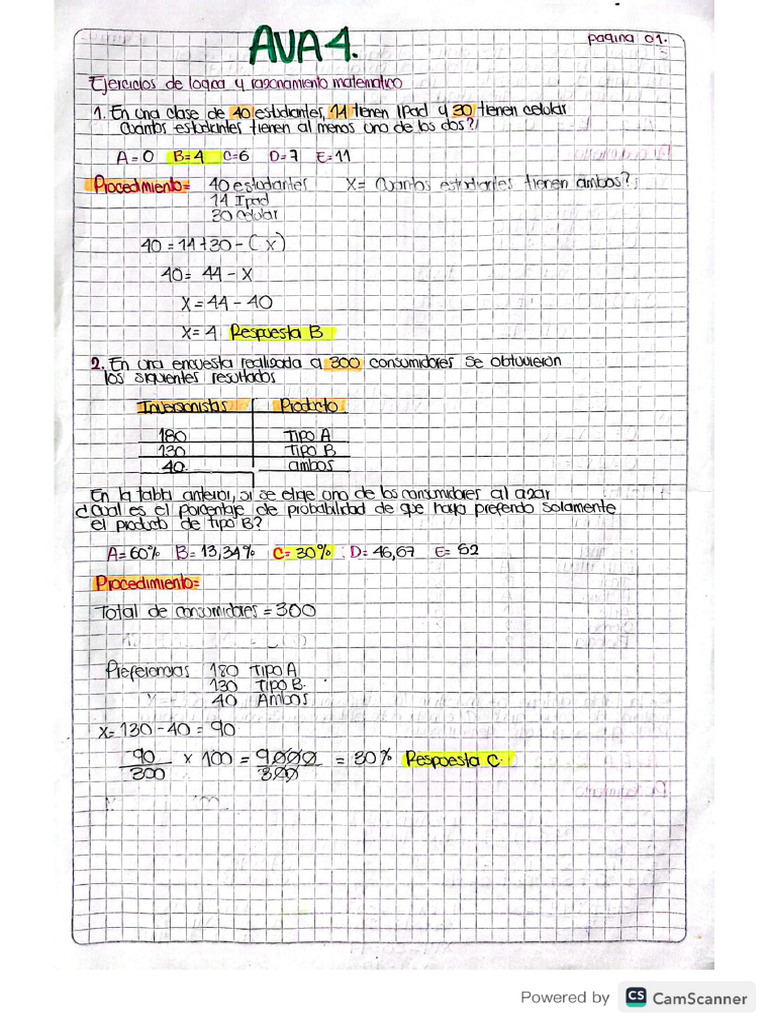 AVA 4.
pagina 01.
Ejercicios de logica y razonamiento matematico
1. En una clase de 40 estudiantes, 14 tienen IPad y 30 tienen celular
Cuantos estudiantes tienen al menos uno de los dos?/
A=0 B=4 C=6 D=7 E=11
Procedimiento= 40 estudiantes X= Cuantos estudiantes tienen ambos?
14 Ipad
30 Celular
40 = 14+30-(X)
40= 44 - X
X=44-40
X=4 Respuesta B
2. En una encuesta realizada a 300 consumidores se obtuvieron
los siguientes resultados
Inversionistas Producto
180 TIPO A
130 TIPO B
40. ambos
En la tabla anterior, si se elige uno de los consumidores al azar
¿Cual es el porcentaje de probabilidad de que haya preferido solamente
el producto de tipo B?
A=60% B=13,34% C=30% D=46,67 E=52
Procedimiento=
Total de consumidores = 300
Preferencias 180 TIPO A
130 TIPO B.
40 Ambos
X=130-40=90
90/300 x 100 = 9000/300 = 30% Respuesta C.
Powered by CS CamScanner